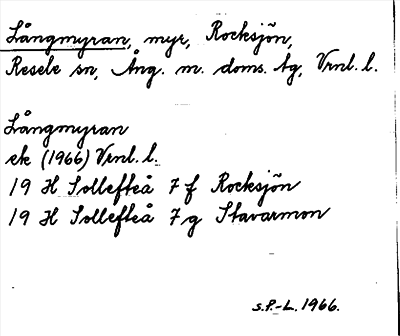 Långmyran, myr, Rocksjön,
Resele sn, Ång. m. doms. tg, Vrnl. l.
Långmyran
ek (1966) Vrnl. l.
19 H Sollefteå 7 f Rocksjön
19 H Sollefteå 7 g Stavarmon
S.P.-L. 1966.